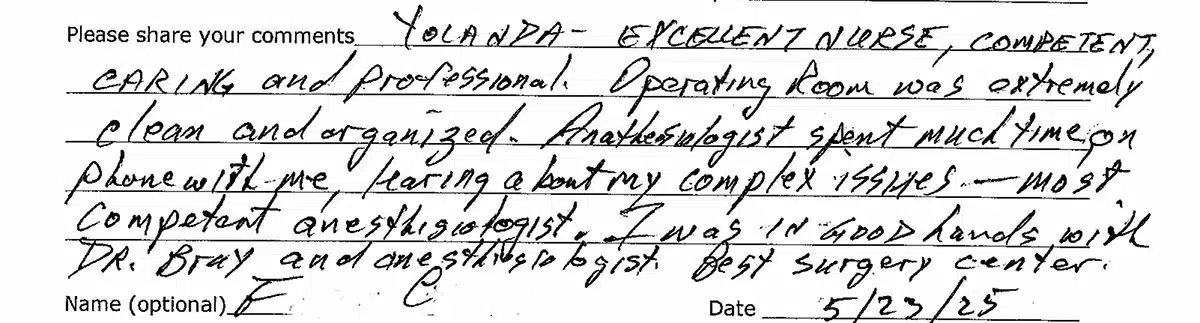 Please share your comments YOLANDA - EXCELLENT NURSE, COMPETENT,
CARING and professional. Operating Room was extremely
clean and organized. Anathesiologist spent much time on
phone with me, Hearing about my complex issues - most
Competent anesthisiologist. I was in GOOD hands with
DR. Bray and anesthisiologist. Best surgery center.
Name (optional) F C Date 5/23/25